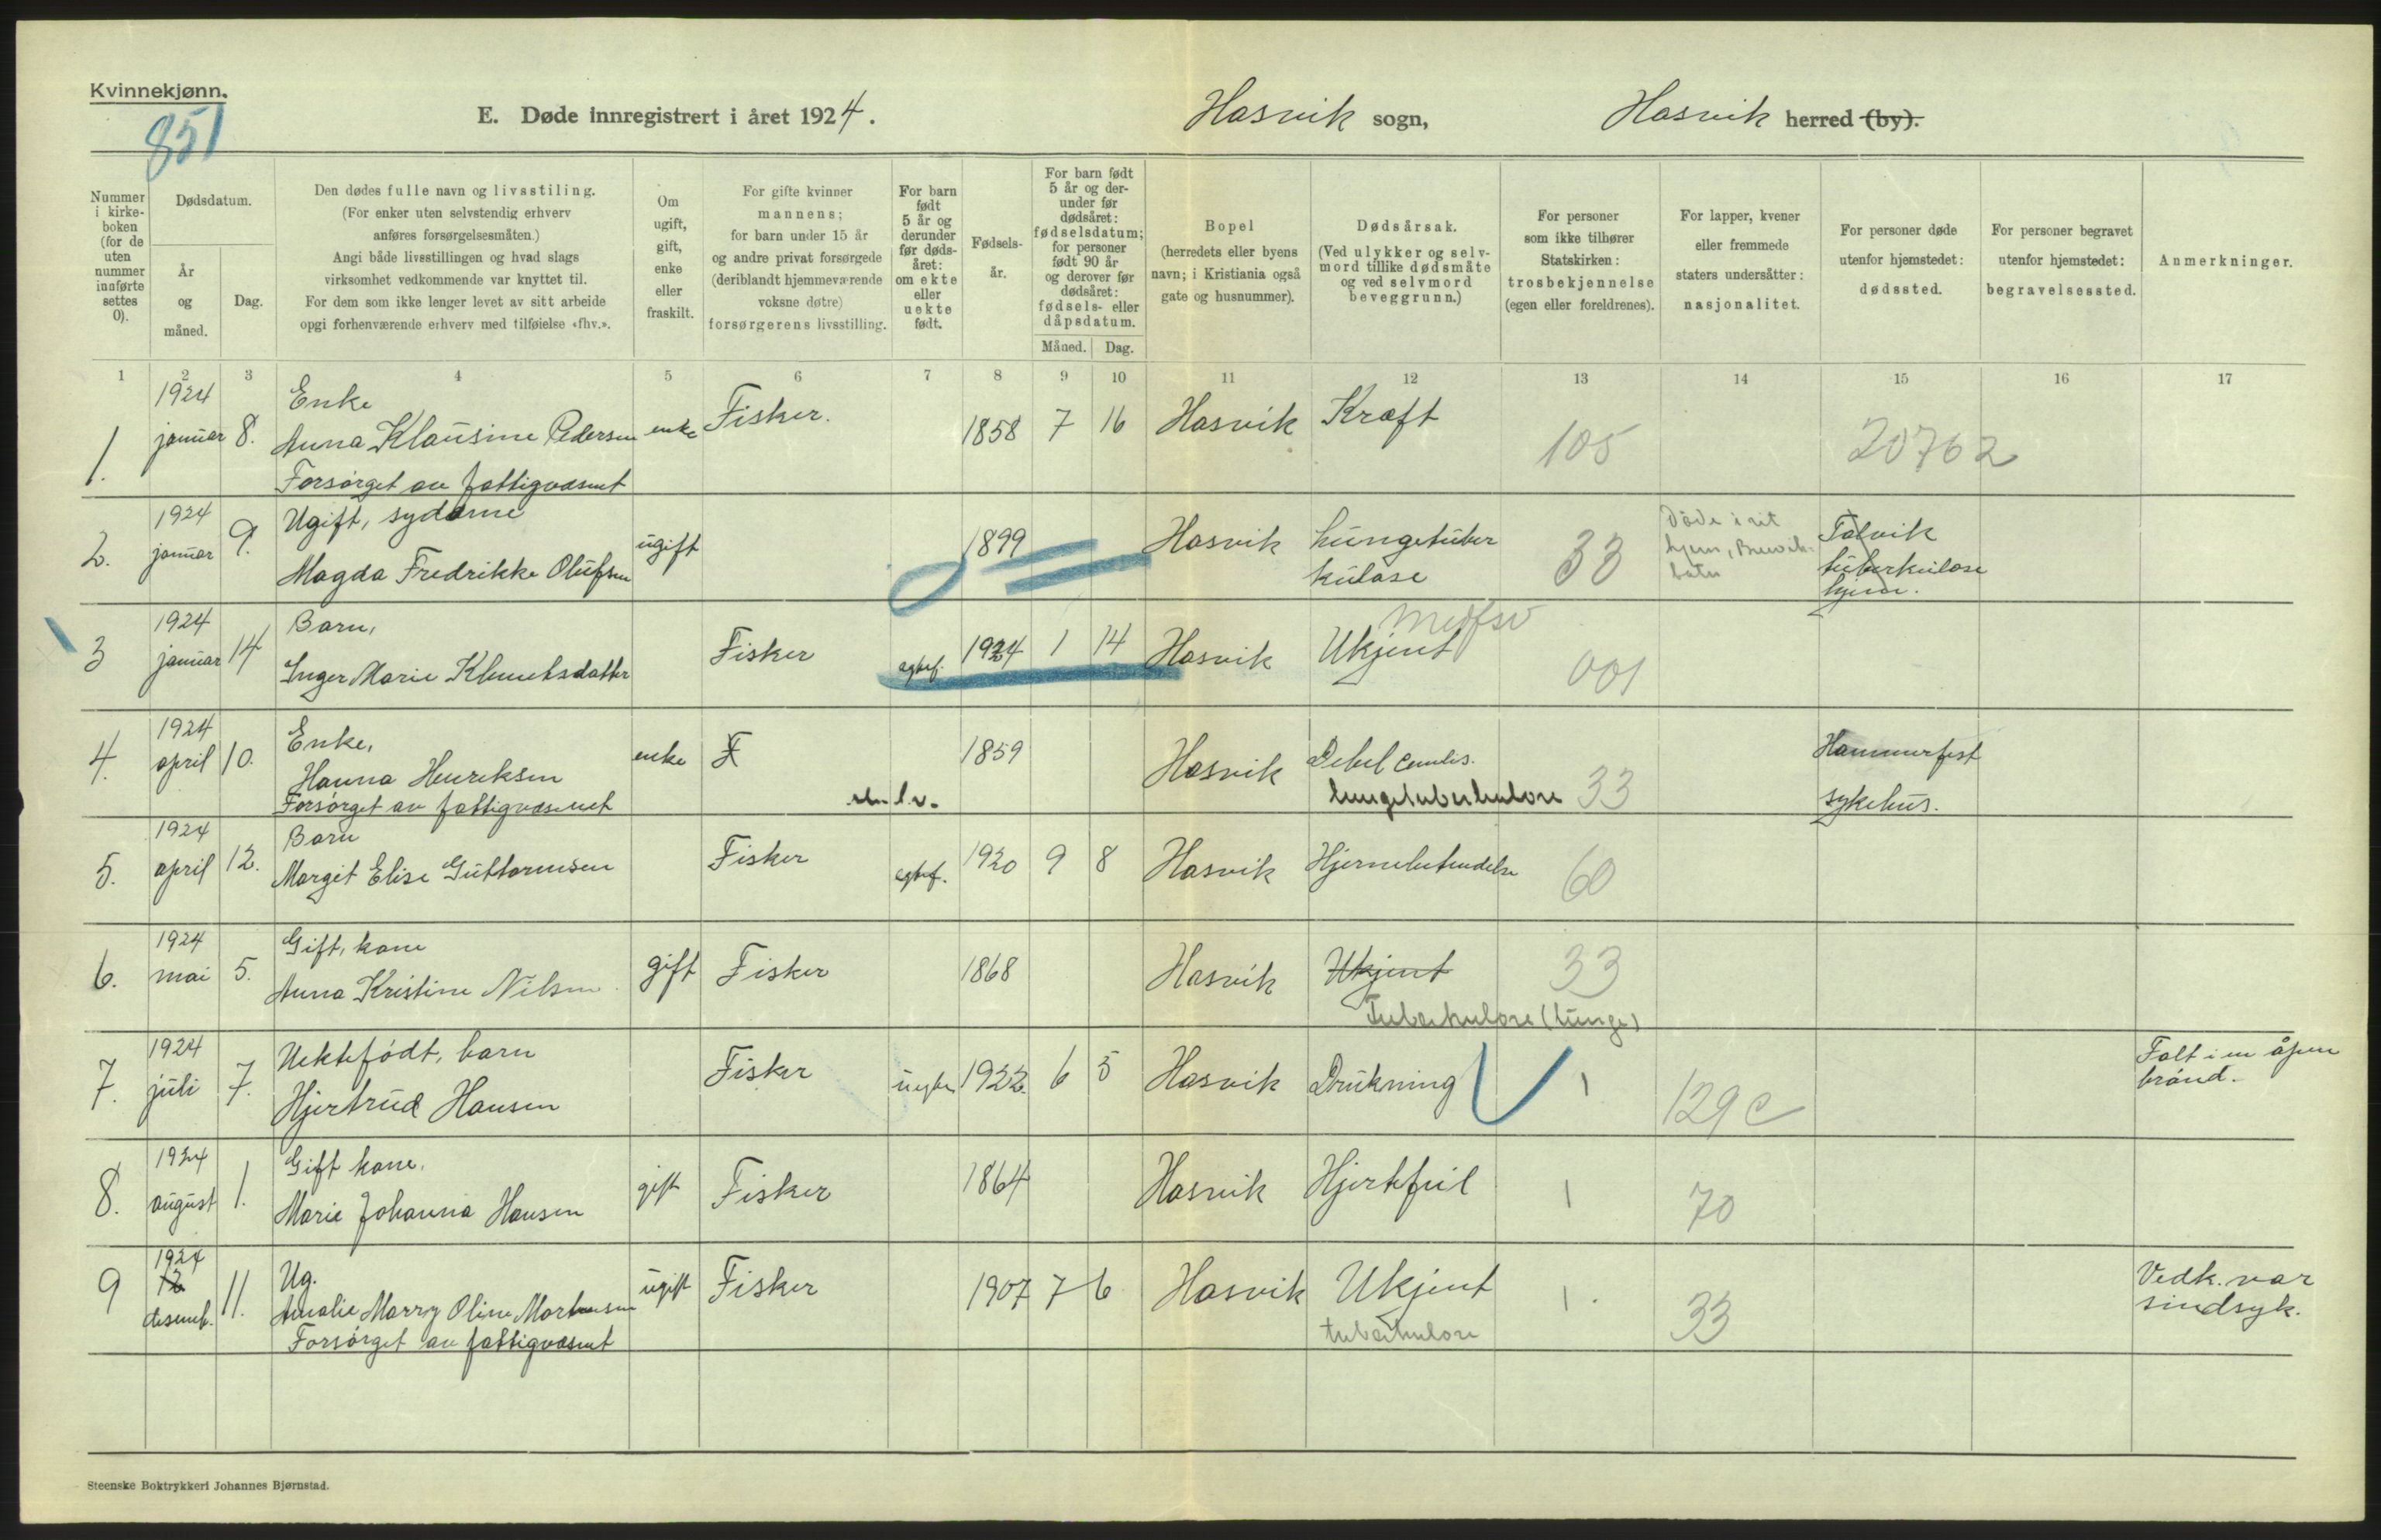 Kvinnekjønn.
851
E. Døde innregistrert i året 1924.
Hasvik sogn,
Hasvik herred (by).
Nummer i kirke-boken (for de uten nummer innførte settes 0).
Dødsdatum.
År og måned.
Dag.
Den dødes fulle navn og livsstiling.
(For enker uten selvstendig erhverv
anføres forsørgelsesmåten.)
Angi både livsstillingen og hvad slags
virksomhet vedkommende var knyttet til.
For dem som ikke lenger levet av sitt arbeide
opgi forhenværende erhverv med tilføielse «fhv.».
Om ugift, gift, enke eller fraskilt.
For gifte kvinner
mannens;
for barn under 15 år
og andre privat forsørgede
(deriblandt hjemmeværende
voksne døtre)
forsørgerens livsstilling.
For barn født 5 år og derunder før døds-året: om ekte eller uekte født.
Fødsels-år.
For barn født
5 år og der-
under før
dødsåret:
fødselsdatum;
for personer
født 90 år
og derover før
dødsåret:
fødsels- eller
dåpsdatum.
Måned. Dag.
Bopel
(herredets eller byens
navn; i Kristiania også
gate og husnummer).
Dødsårsak.
(Ved ulykker og selv-
mord tillike dødsmåte
og ved selvmord
beveggrunn.)
For personer
som ikke tilhører
Statskirken:
trosbekjennelse
(egen eller foreldrenes).
For lapper, kvener
eller fremmede
staters undersåtter:
nasjonalitet.
For personer døde
utenfor hjemstedet:
dødssted.
For personer begravet
utenfor hjemstedet:
begravelsessted.
Anmerkninger.
1 2 3 4 5 6 7 8 9 10 11 12 13 14 15 16 17
1924 Enke
1. januar 8. Anna Klausine Pedersen enke Fisker. 1858 7 16 Hasvik Kræft 105 20762
Forsørget av fattigvæsnet
1924 Ugift, sydame
2. januar 9. Magda Fredrikke Olufsen ugift 1899 Hasvik Lungetuber
kulose 33 Døde i sit
hjem, Talvik
tuberkulose
hjem.
1924 Barn,
3 januar 14 Inger Marie Klemetsdatter Fisker egtef. 1924 1 14 Hasvik Ukjent 001
1924 Enke,
4. april 10. Hanna Henriksen enke F 1859 Hasvik Debil
lungetuberkulose 33 Hammerfest
sykehus.
Forsørget av fattigvæsenet
1924 Barn
5. april 12. Margit Elise Guttormsen Fisker egtef. 1920 9 8 Hasvik Hjernebetendelse 60
1924 Gift, kone
6. mai 5. Anna Kristine Nilsen gift Fisker 1868 Hasvik Ukjent 33
Tuberkulose (lunge)
1924 Uektefødt, barn
7. juli 7. Hjertrud Hansen Fisker uegte 1922 6 5 Hasvik Drukning 1 129c Falt i en åpen
brønd.
1924 Gift kone.
8. august 1. Marie Johanna Hansen gift Fisker 1864 Hasvik Hjertefeil 1 70
1924 12 Ug.
9 desemb. 11. Amalie Marry Oline Mortensen ugift Fisker 1907 7 6 Hasvik Ukjent 1. 33 Vedk. var
sindsyk.
tuberkulose
Forsørget av fattigvæsnet
Steenske Boktrykkeri Johannes Bjørnstad.